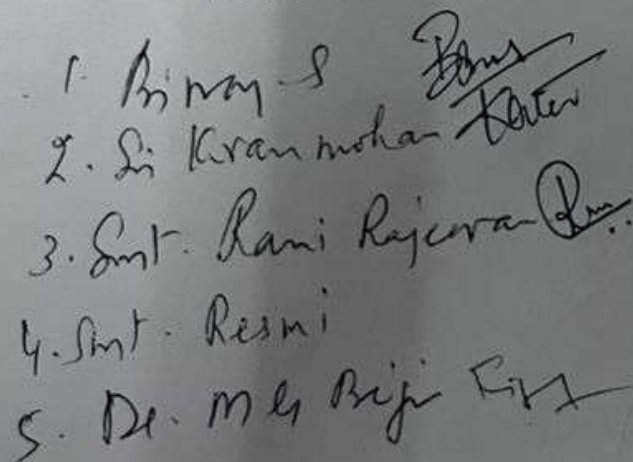 1. Binoy S
2. Sri Kiran mohan
3. Smt. Rani Rajeevan
4. Smt. Resmi
5. Dr. M G Biji